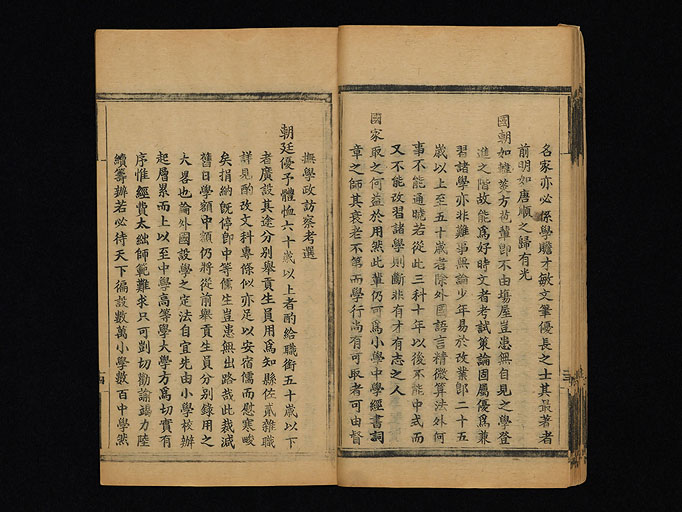 名家亦必係學贍才敏文筆優長之士其最著者
前明如唐順之歸有光
國朝如雄方苞輩卽不由場屋豈患無自見之學登
進之階故能爲好時文者考試策論固屬優爲兼
習諸學亦非難事無論少年易於改業卽二十五
歲以上至五十歲者除外國語言精微算法外何
事不能通曉若從此三科十年以後不能中式而
又不能改習諸學則斷非有才有志之人
國家取之何益於用然此輩仍可爲小學中學經書詞
章之師其衰老不第而學行尚有可取者可由督
撫學政訪察考選
朝廷優予體恤六十歲以上者酌給職銜五十歲以下
者廣設其途分別舉貢生員用爲知縣佐貳雜職
詳見酌改文科專條似亦足以安宿儒而慰寒畯
矣捐納旣停卽中等儒生豈患無出路哉此裁減
舊日學額中額仍將從前舉貢生員分別錄用之
大畧也論外國設學之定法自宜先由小學校辦
起層累而上以至中學高等學大學方爲切實有
序惟經費太絀師範難求只可剴切勸諭竭力陸
續籌辦若必待天下徧設數萬小學數百中學然